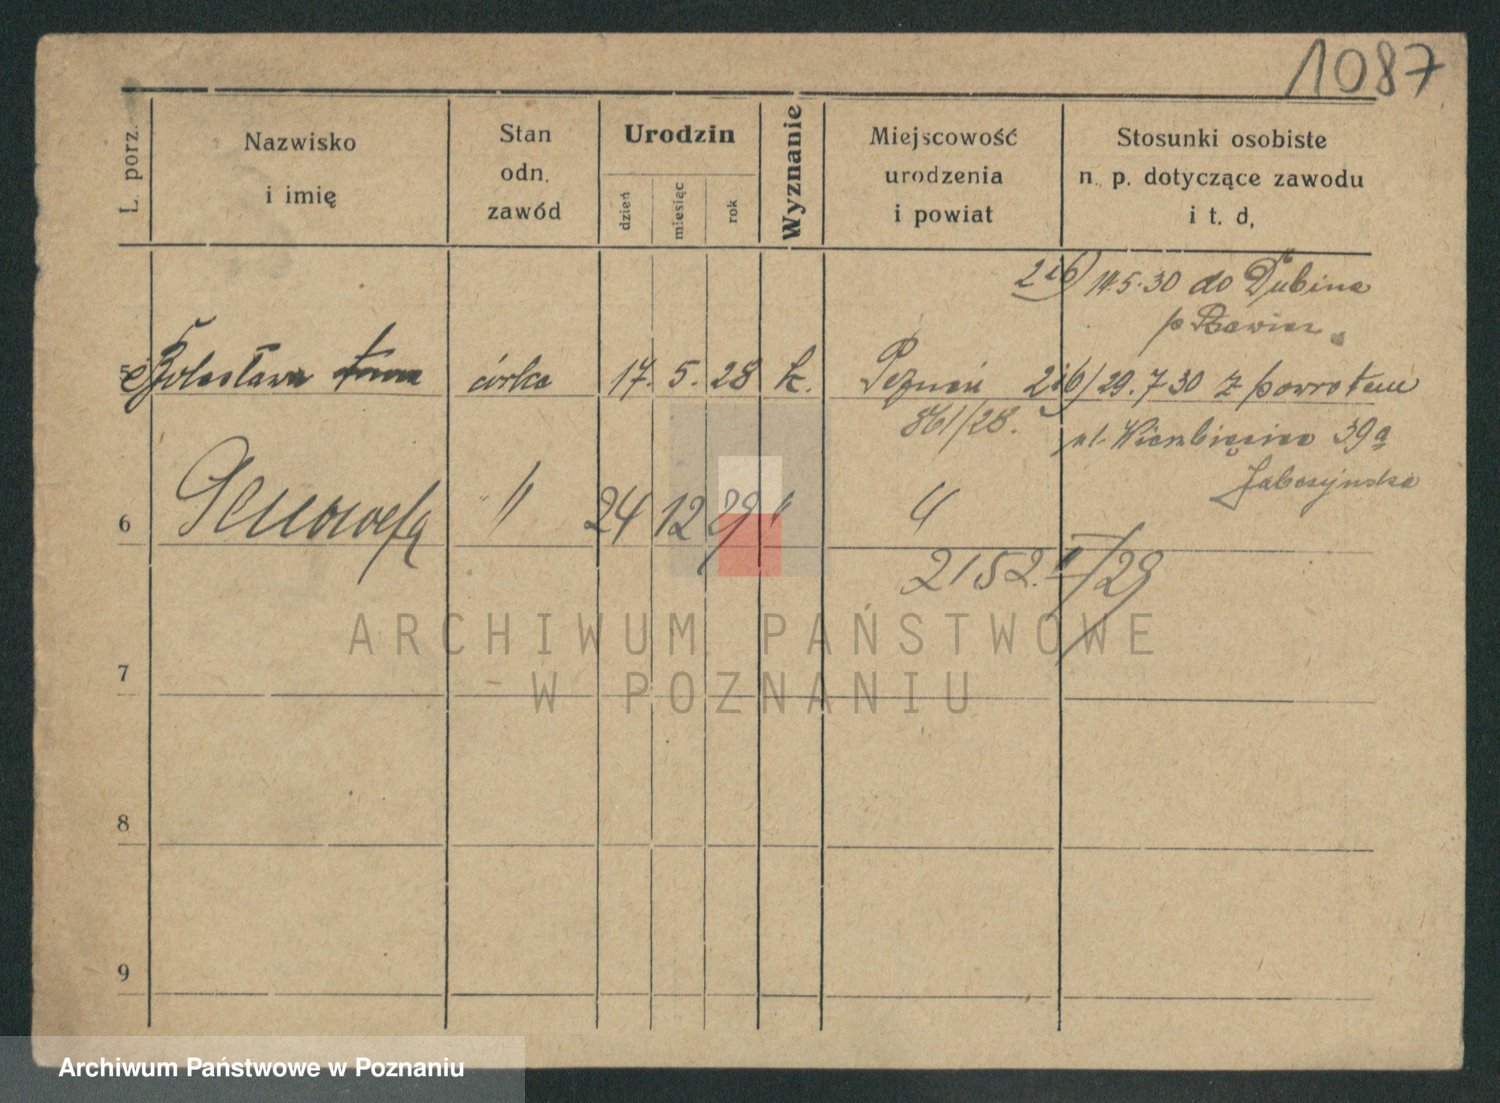 1087
L. porz.
Nazwisko
i imię
Stan
odn.
zawód
Urodzin
dzień
miesiąc
rok
Wyznanie
Miejscowość
urodzenia
i powiat
Stosunki osobiste
n. p. dotyczące zawodu
i t. d,
2 i 6) 14.5.30 do Dubina
p Rawicz
5 Bolesława córka 17. 5. 28 k. Poznań 2 i 6) 29.7.30 z powrotem
861/28. ul. Wierzbięcice 39a
6 Genowefa " 24 12 29 " "
2152 II/29
7
8
9
ARCHIWUM PAŃSTWOWE
W POZNANIU
Archiwum Państwowe w Poznaniu